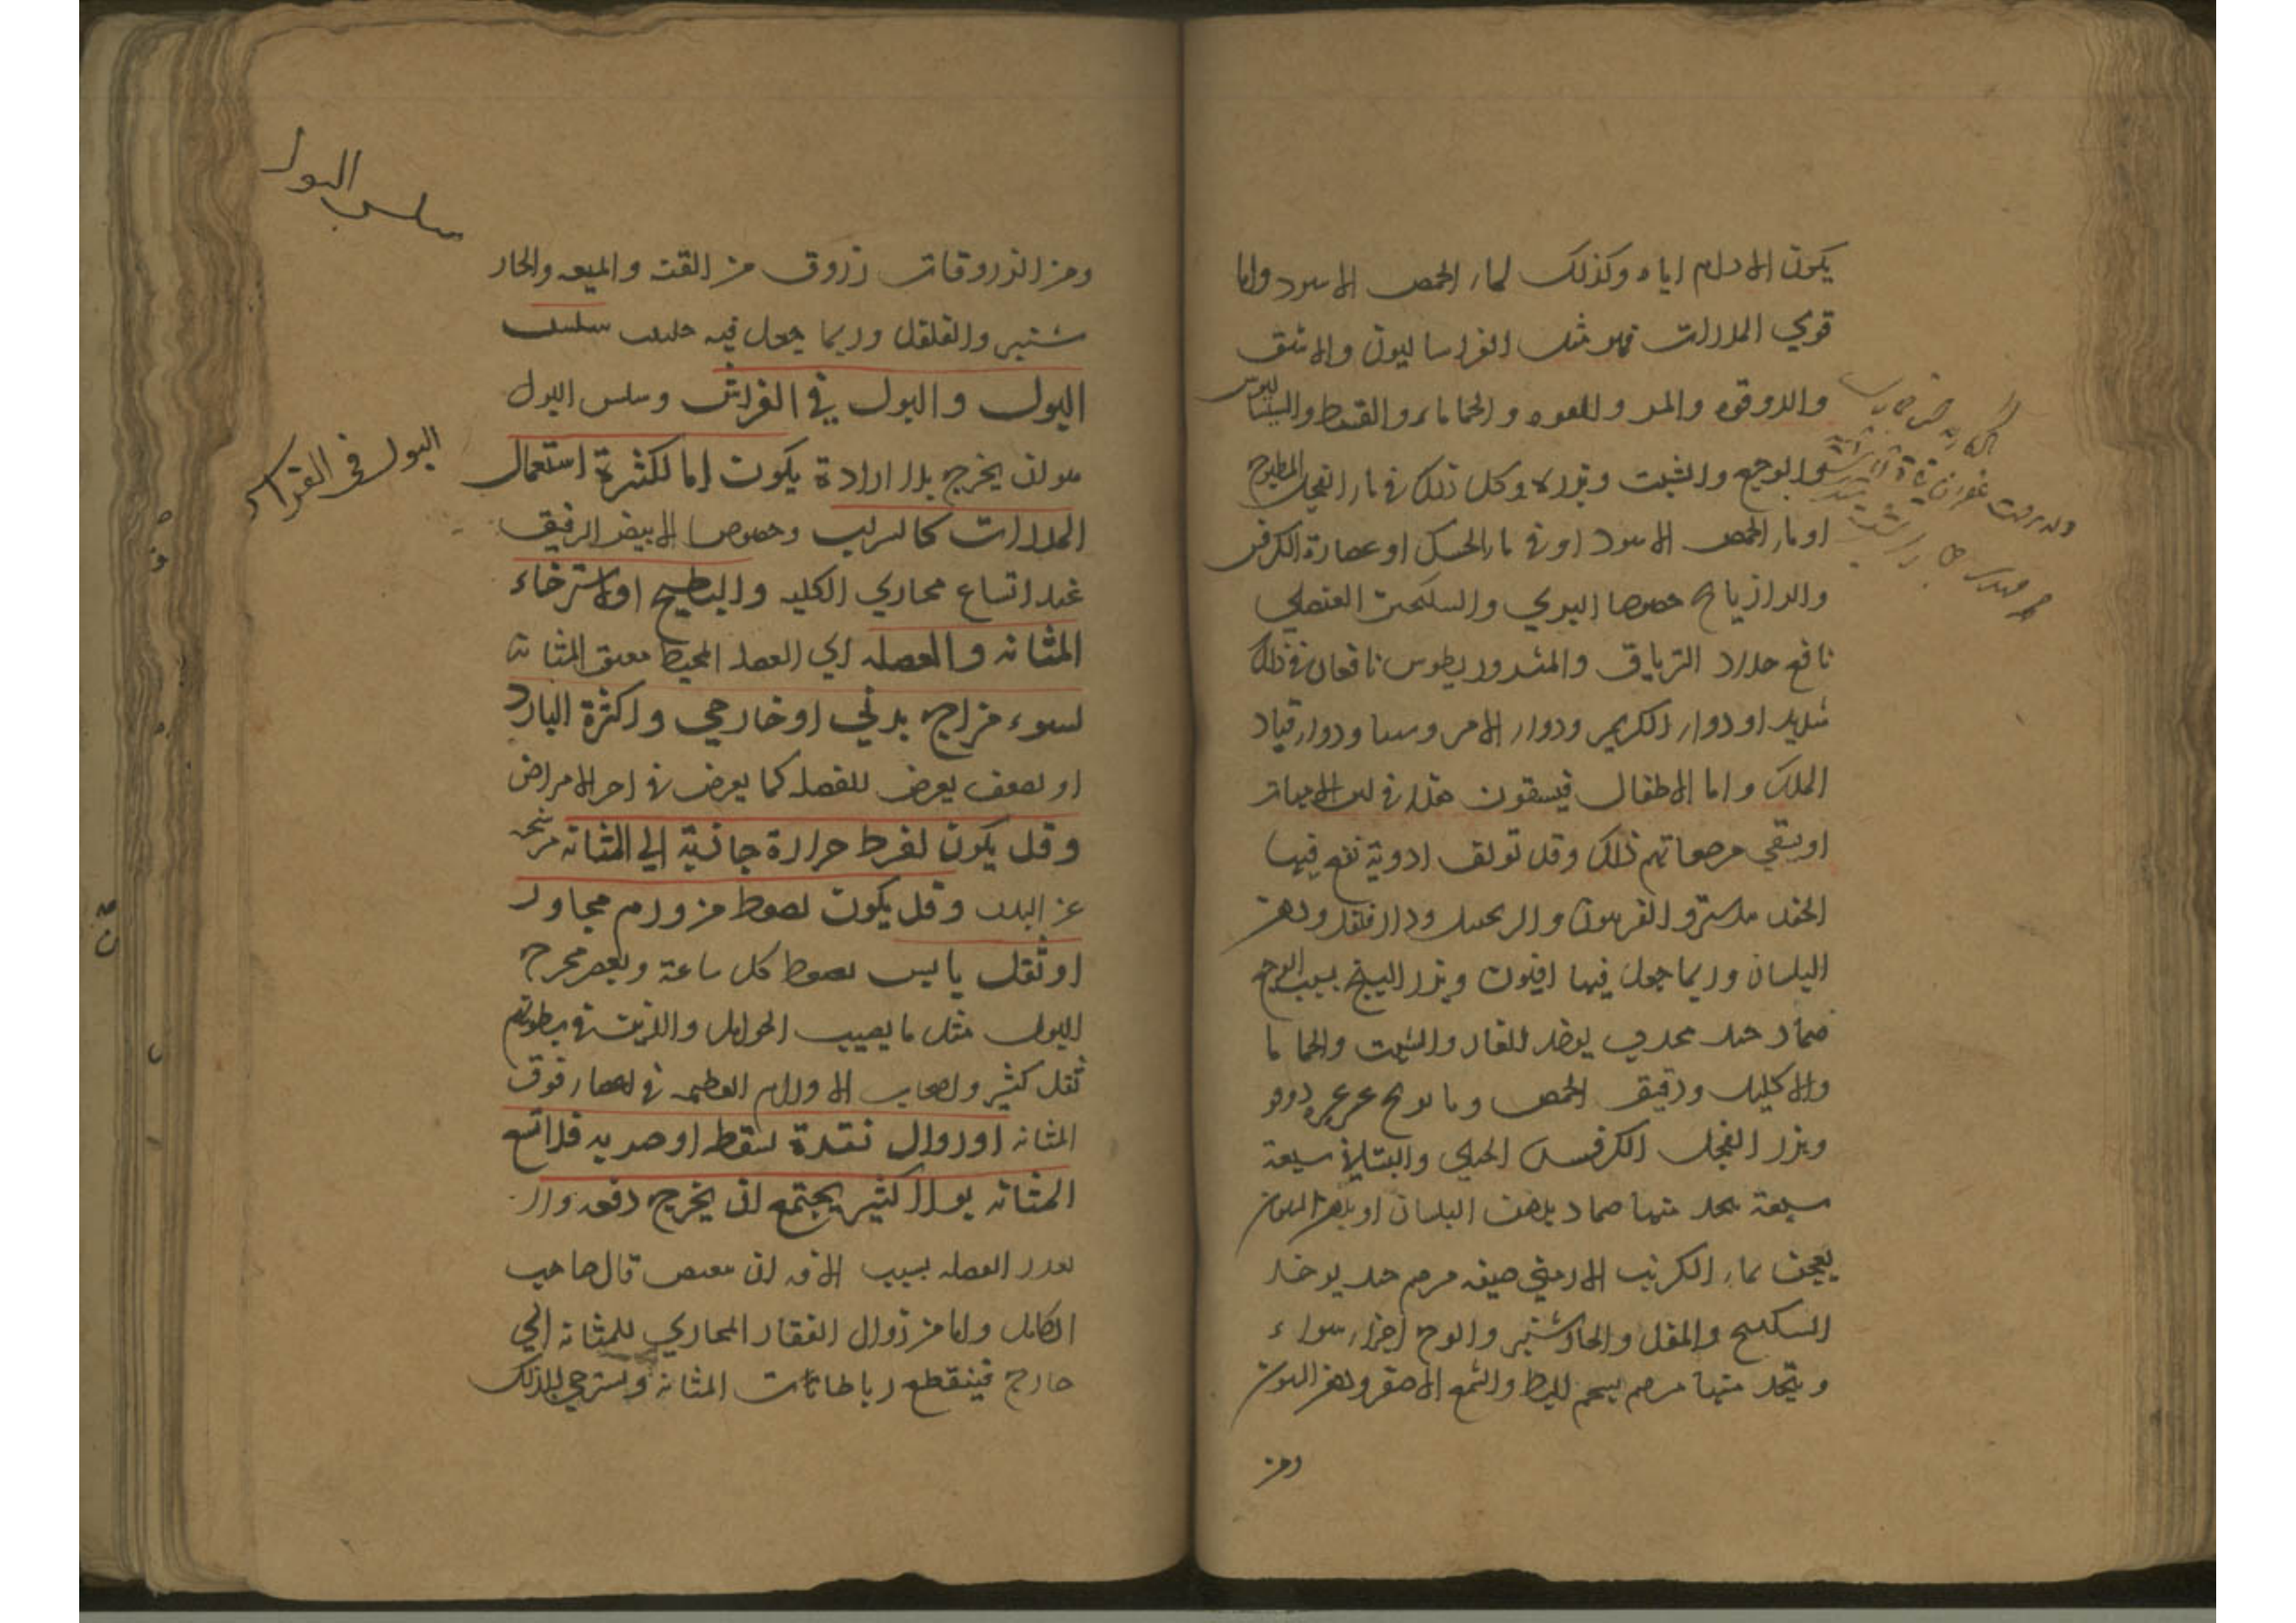 يكون الادام اياه وكذلك لماء الحمص الاسود واما
قوي المدرات فهو مثل الفراساليون والاشق
والدوقوه والمر والفوه والحماماء والقسط والبساليوس
والوجع والشبت وبزره وكل ذلك في ماء الفجل المطبوخ
او ماء الحمص الاسود او في ماء الحسك او عصارة الكرفس
والرازيانج خصوصا البري والسكنجبين العنصلي
نافع جدا والترياق والمثروديطوس نافعان في ذلك
شديد او دواء الكريم ودواء الامروسيا ودواء قباد
الملك واما الاطفال فيسقون هذا في لبن الامهات
او يسقي مرضعاتهم ذلك وقد تولف ادوية نفع فيها
الجندبيدستر والفربيون والزنجبيل ودار فلفل ودهن
البلسان وربما جعل فيها افيون وبزر البنج بسبب الوجع
ضماد جيد مجرب يوخذ للغار والشبت والحماما
والاكليل ودقيق الحمص وبابونج عرعر دوقو
وبزر الفجل الكرفس الجبلي والبستاني سبعة
سبعة يتخذ منها ضماد بدهن البلسان او بدهن السوسن
يعجن بماء الكرنب الارمني صفه مرهم جيد يوخذ
السكبينج والمقل والجاوشير والوج اجزاء سواء
ويتخذ منها مرهم بشحم البط والشمع الاصفر ودهن السوسن
ومن
سلس البول
البول في الفراش
ومن الزروقات زروق من القنه والميعه والجاو
شير والفلفل وربما جعل فيه حلتيت سلسل
البول والبول في الفراش وسلس البول
هو ان يخرج بلا ارادة يكون اما لكثرة استعمال
المدرات كالشراب وخصوصا الابيض الرقيق
عند اتساع مجاري الكليه والبطيخ او لاسترخاء
المثانه والعضله اي العضل المحيط بعنق المثانه
لسوء مزاج بدني او خارجي واكثره البارد
او لضعف يعرض للعضله كما يعرض في اخر الامراض
وقد يكون لفرط حرارة جاذبة الي المثانه مرشحه
عن البدن وقد يكون لضغط من ورم مجاور
او ثفل يابس يضغط كل ساعة ويعصر مخرج
البول مثل ما يصيب الحوامل والذين في بطونهم
ثفل كثير واصحاب الاورام العظيمه في اعضاء فوق
المثانه او زوال فقرة لسقطه او ضربه قد اتسع
المثانه بولا كثير يجتمع ان يخرج دفعه ولا
تقدر العضله بسبب الافه ان تقبض قال صاحب
الكامل واما من زوال الفقار المحاذي للمثانه الي
خارج فينقطع رباطات المثانه ويسترخي لذلك